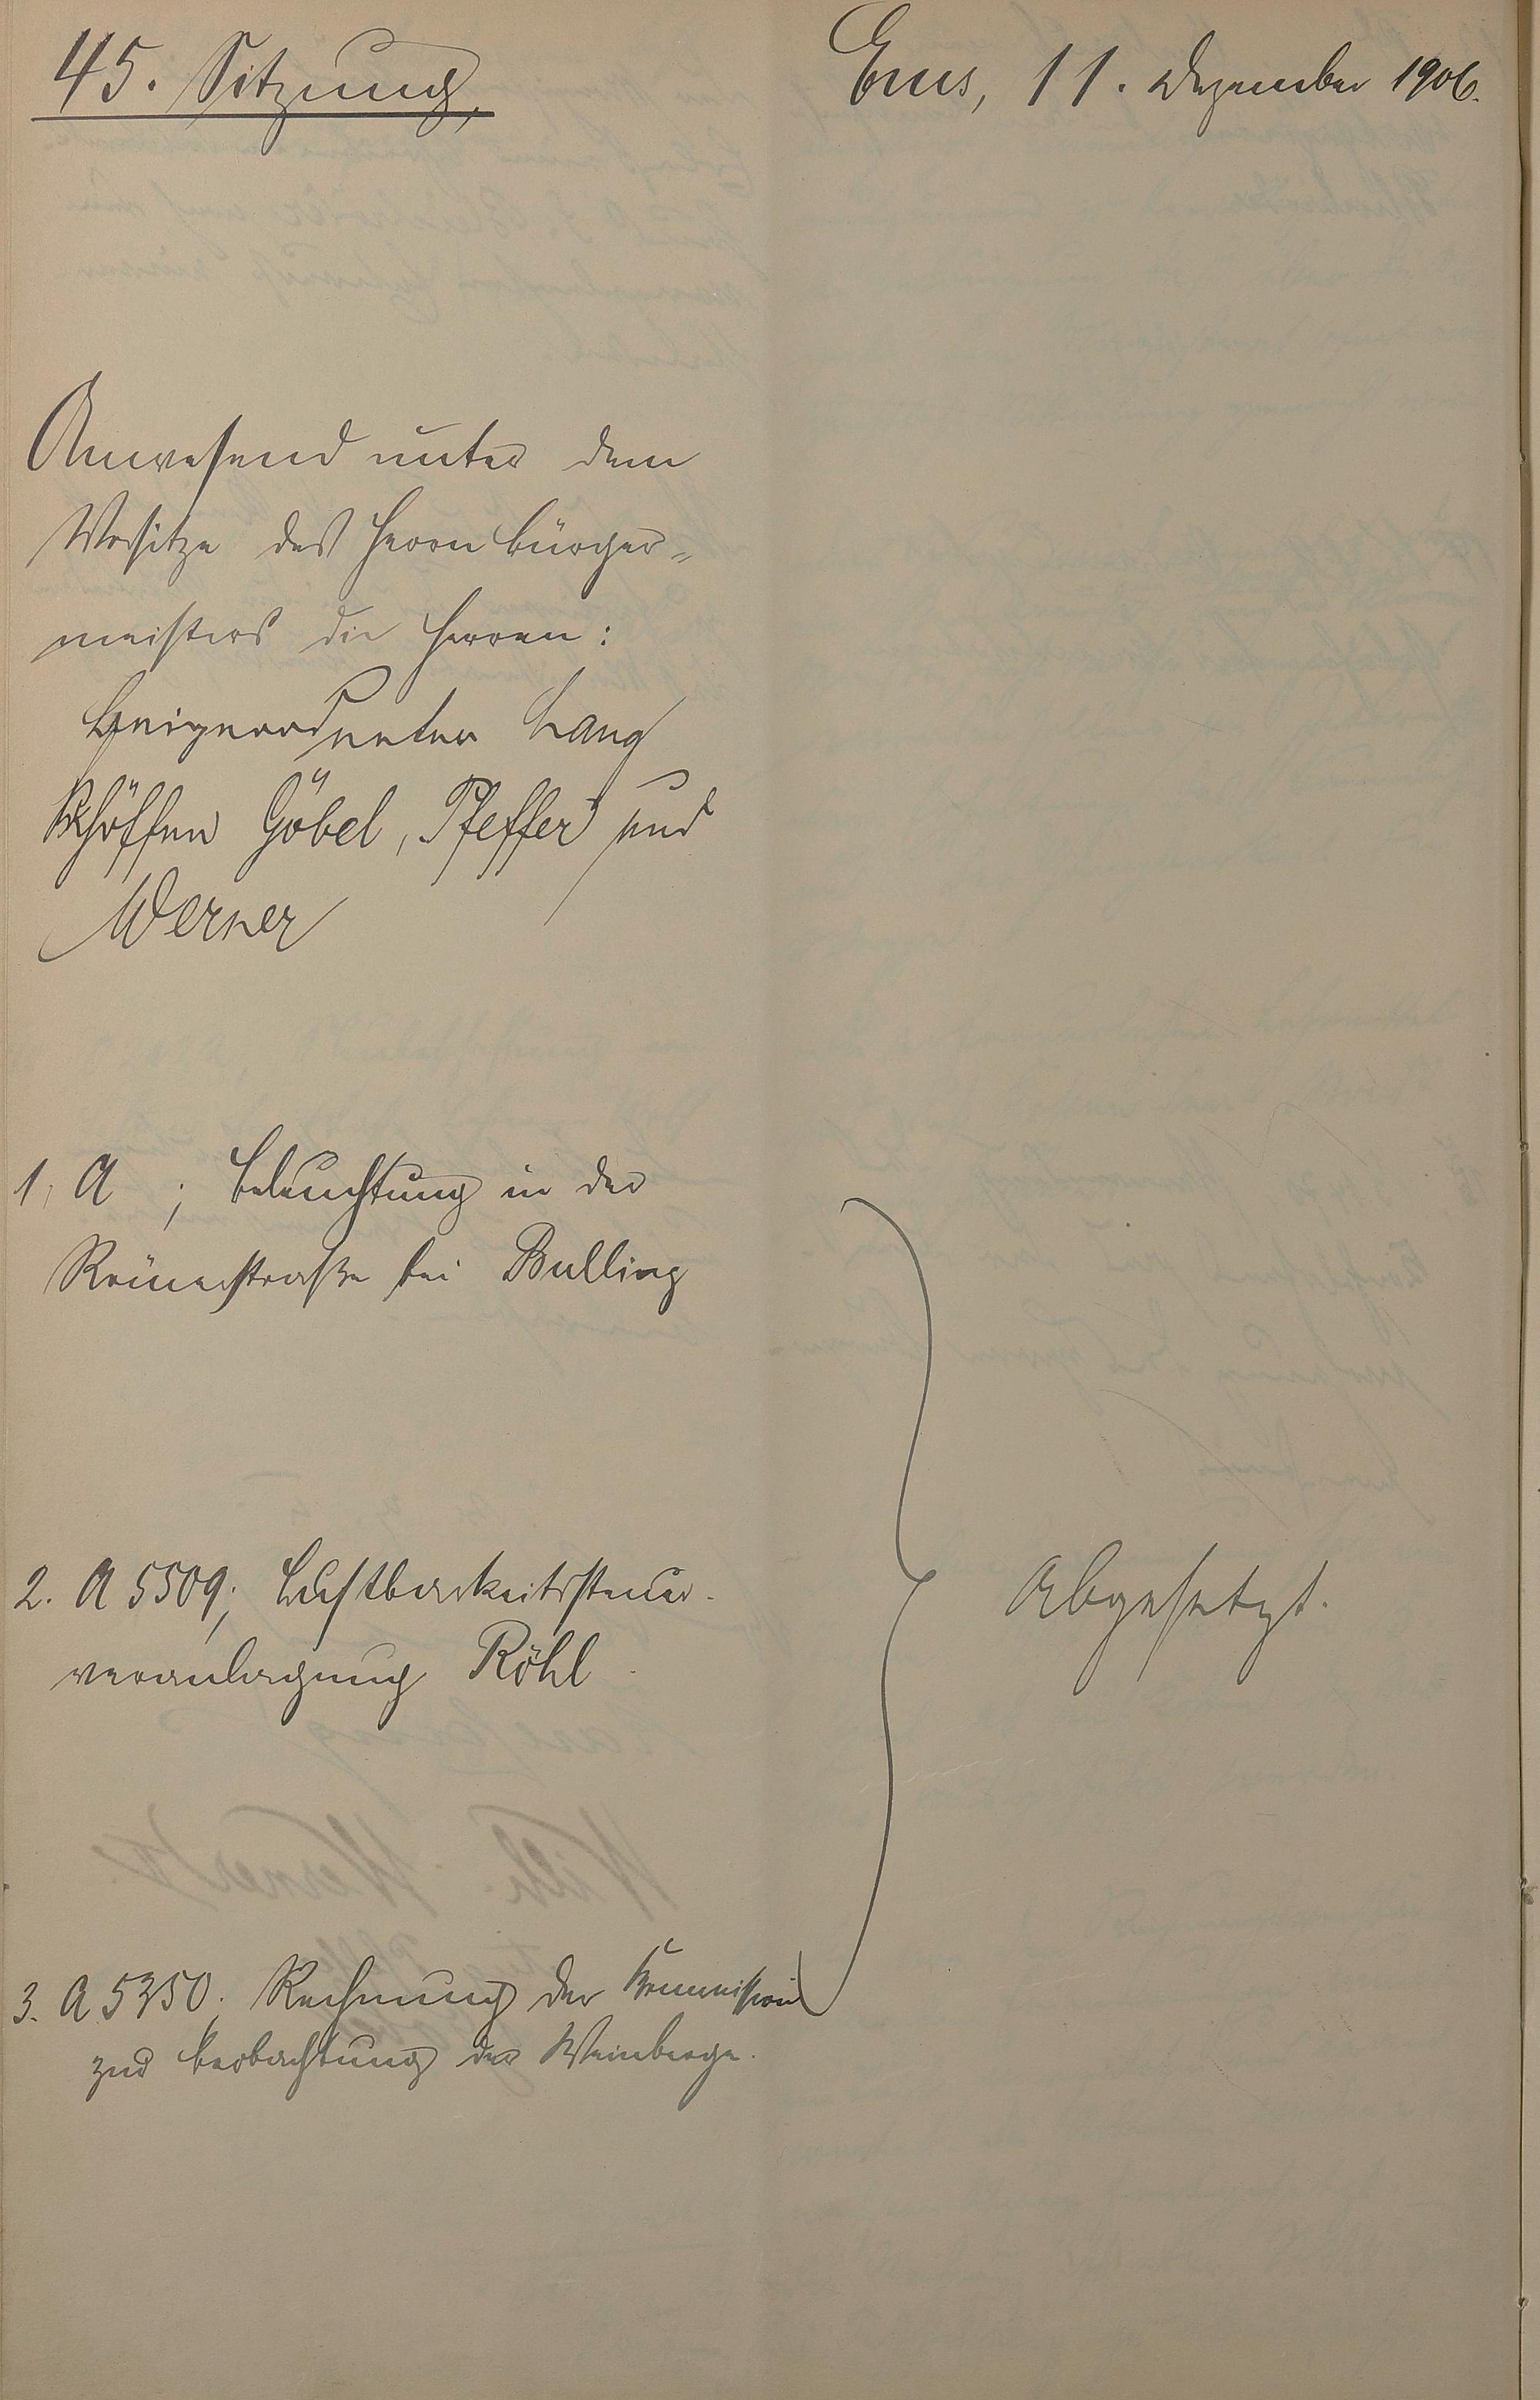 45. Sitzung,
Ems, 11. Dezember 1906.
Anwesend unter dem
Vorsitze des Herrn Bürger-
meisters die Herren:
Beigeordneter Lang
Schöffen Göbel, Pfeffer und
Werner
1, A ; Beleuchtung in der
Römerstraße bei Bulling
2. A 5509; Lustbarkeitssteuer-
veranlagung Röhl
Abgesetzt.
3. A 5350; Rechnung der Kommission
zur Beobachtung der Weinberge.